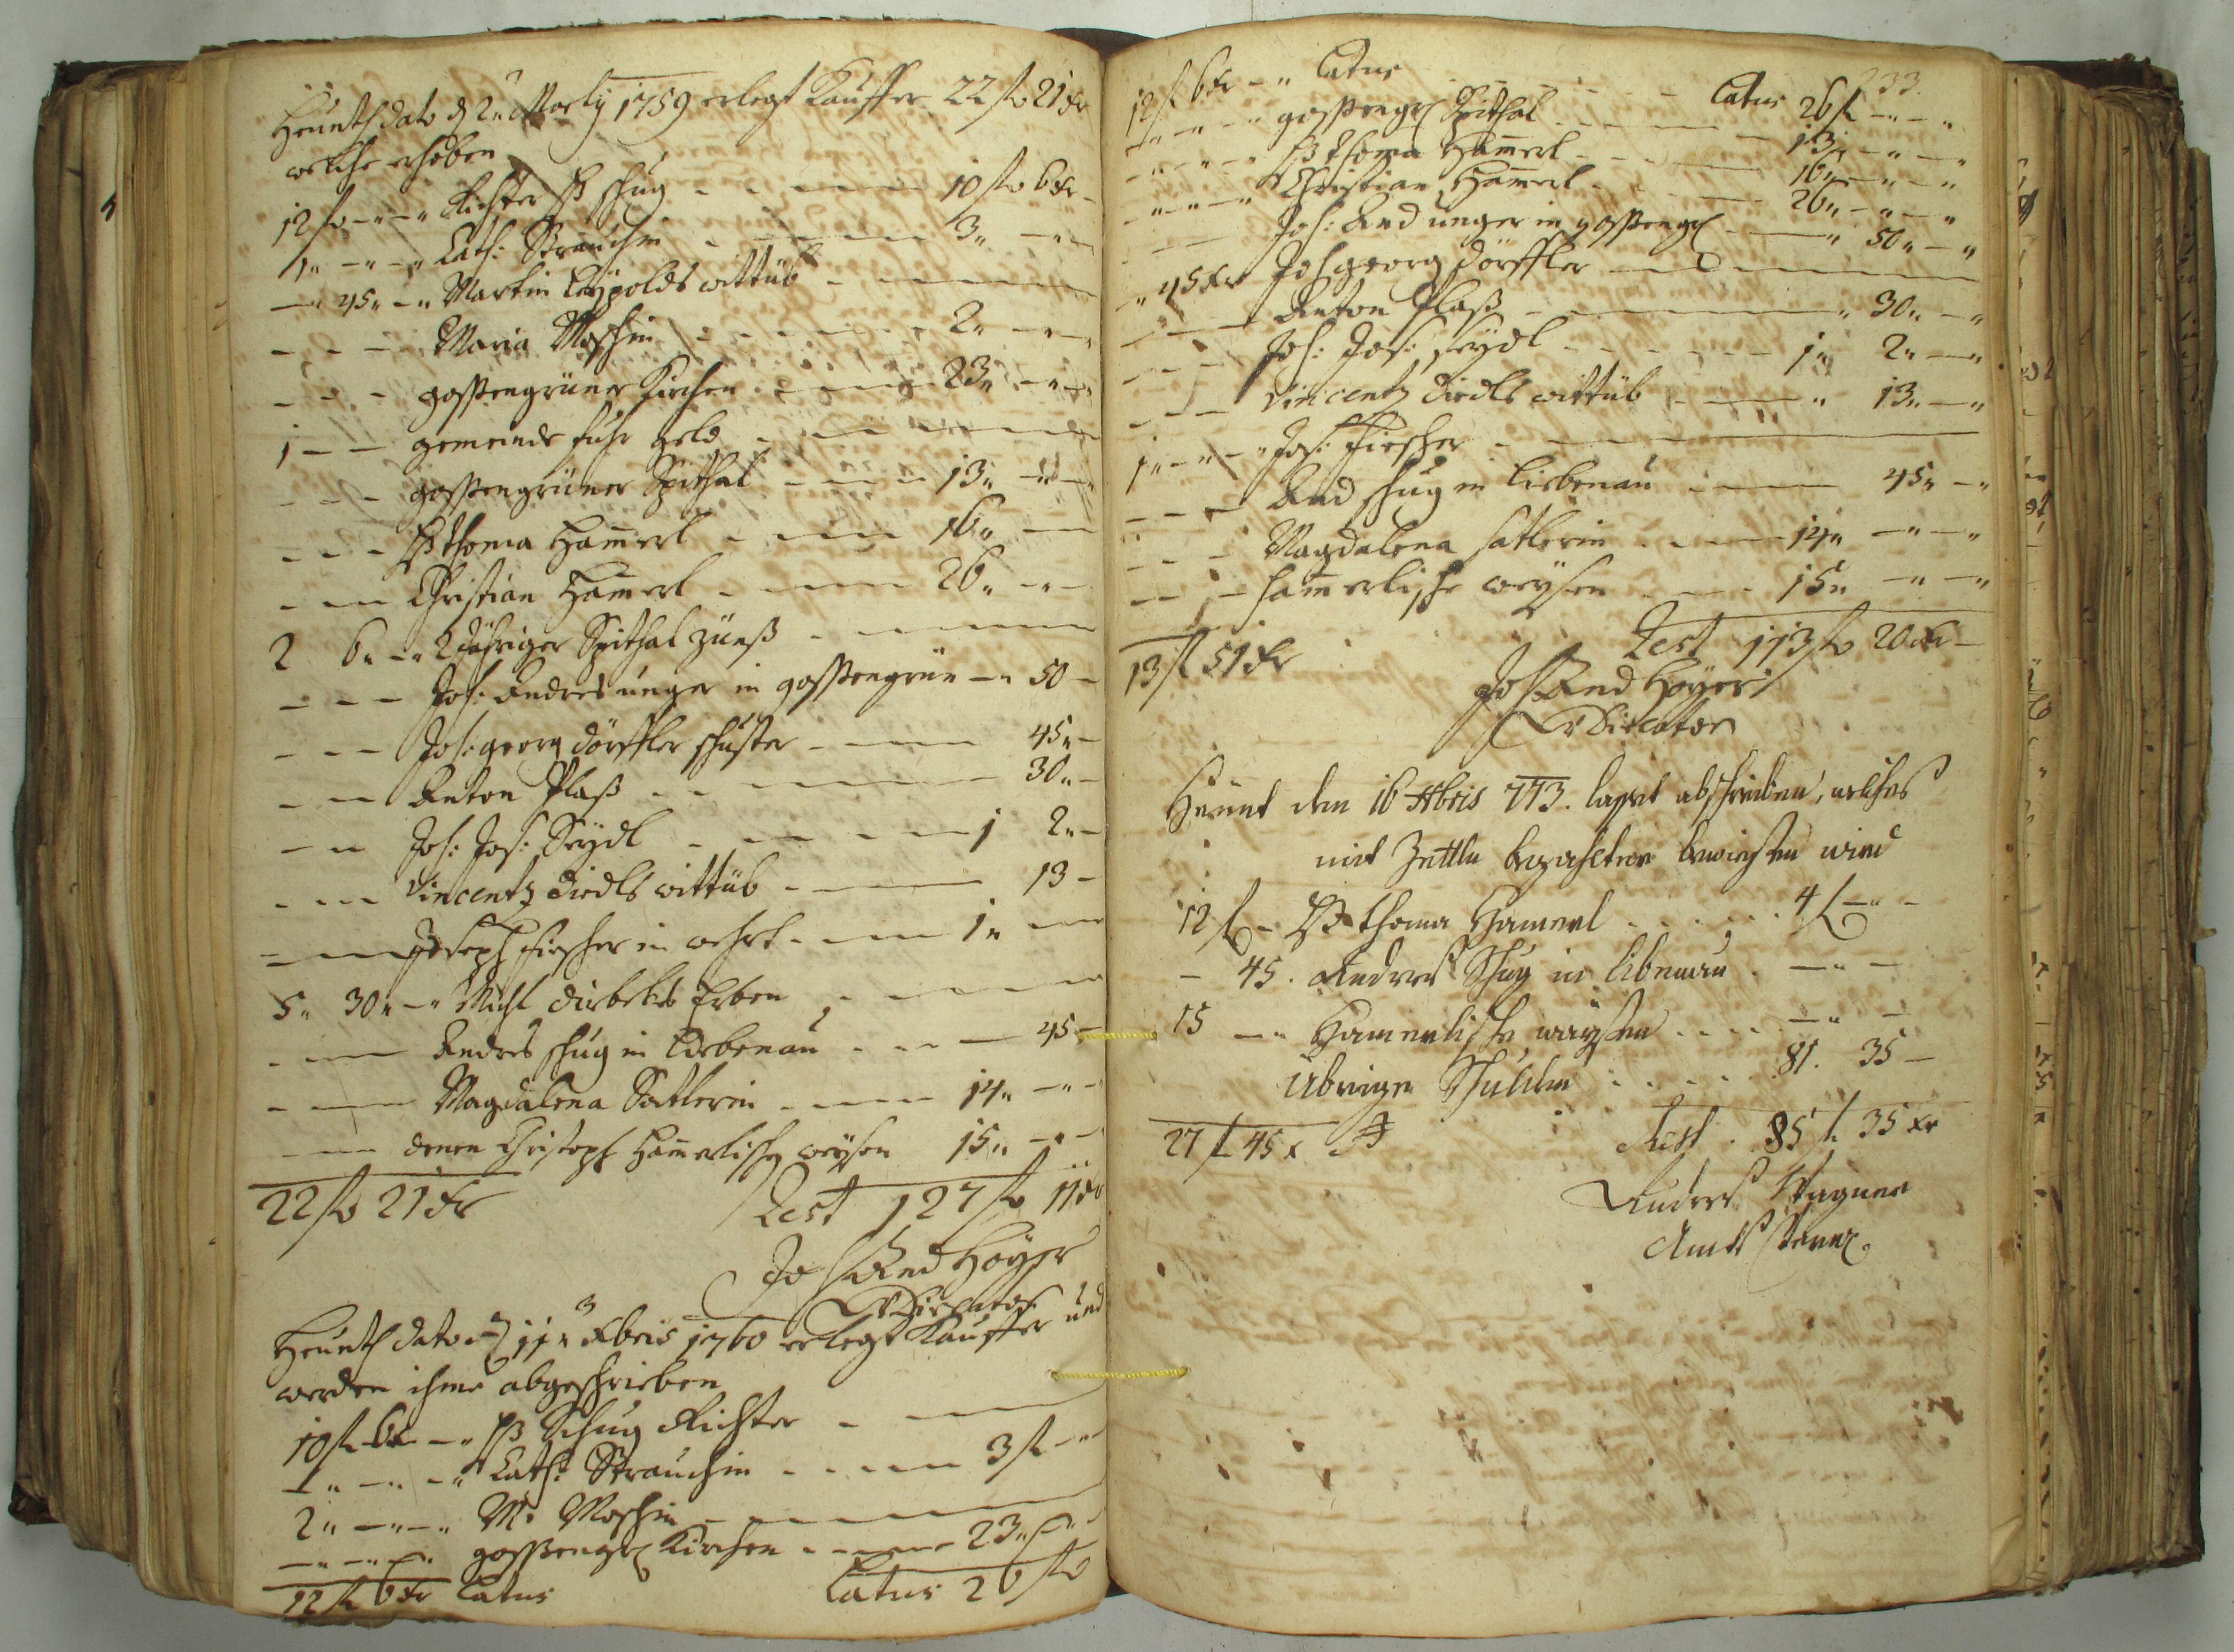 Heunth dato d 2n Marty 1759 erlegt Kauffer 22 fl 21 Kr
welche erhoben
12 fl – „ – „ Richter Hß Schug - - - 10 fl 6 Kr
1 „ – „ – „ Cath: Strauchin - - - 3 „ – „ –
– „ 45 „ – „ Martin Leÿpolds wittüb - - -
- - - Maria Moschin - - - 2 „ – „ –
- - - gossengrüner Kirchen - - - 23 „ – „ –
1 – – gemeinde fuhr geld - - -
- - - gossengrüner Spithal - - - 13 „ – „ –
- - - Hß thoma Ham̄erl - - - 16 „ –
- - - Christian Ham̄erl - - - 26 „ – „ –
2 6 „ – „ 2 Jähriger Spithal zünß - - -
- - - Joh: Andres unger in gossengrün – „ 50 –
- - - Joh: georg dörffler schuster - - - 45 „ –
- - - Anton Plaß - - - 30 „ –
- - - Joh: Jos: Seÿdl - - - 1 2 „ –
- - - Vincentz diedls wittüb - - - 13 –
- - - Joseph Fischer in - - - 1 „ –
5 „ 30 „ – „ Michl Erben - - -
- - - Andres schug in Liebenau - - - 45 –
- - - Magdalena Satlerin - - - 14 „ – „ –
- - - denen Christoph Ham̄erlische weÿsen 15 „ – „ –
22 fl 21 Kr Rest 127 fl 11 Kr
Joh And Höÿer
Heunth dato 11n Xbris 1760 erlegt Kauffer und
werden ihme abgeschrieben
10 fl 6 Kr – „ Hß Schug Richter - - -
– „ – „ – „ Cath: Strauchin - - - 3 fl – „
2 „ – „ – „ M: Moschin - - -
– „ – „ – „ gossengr Kirchen - - - 23 „ –
12 fl 6 Kr Latus Latus 26 fl
233.
12 fl 6 Kr – „ Latus Latus 26 fl – „ – „
– „ – „ – „ gossengr Spithal - - - 13 „ – „ –
– „ – „ – „ Hß thoma Ham̄erl - - - 16 „ – „ –
– „ – „ – „ Christian Ham̄erl - - - 26 „ – „ – „
- - - Joh: And unger in gossengr – „ 50 „ – „
„ 45 Kr Joh georg dörffler - - -
- - - Anton Plaß - - - „ 30 „ – „
- - - Joh: Jos: seÿdl - - - 1 „ 2 „ – „
- - - Vincentz diedls wittüb - - - „ 13 „ – „
1 „ – „ – „ Jos: Fischer - - -
- - - And schug in liebenau - - - 45 „ – „
- - - Magdalena satlerin - - - 14 „ – „ – „
- - - ham̄erlische weÿsen - - - 15 „ – „ – „
13 fl 51 Kr Rest 113 fl 20 Kr –
Joh And Höÿer
Heunt den 16 773. lasset abschreiben, welches
mit Zettln bezahlter bewiesen wird
12 fl – Hß thoma Hamerl . . . . 4 fl – „ –
– 45 . Andres Schug in libenau . – „ –
15 – „ Hamerlische waÿsen . . . – „ –
übrige Schulden . . . . 81. 35 –
27 fl 45 x Rest . 85 fl 35 Kr
Andres Wagner
Amts